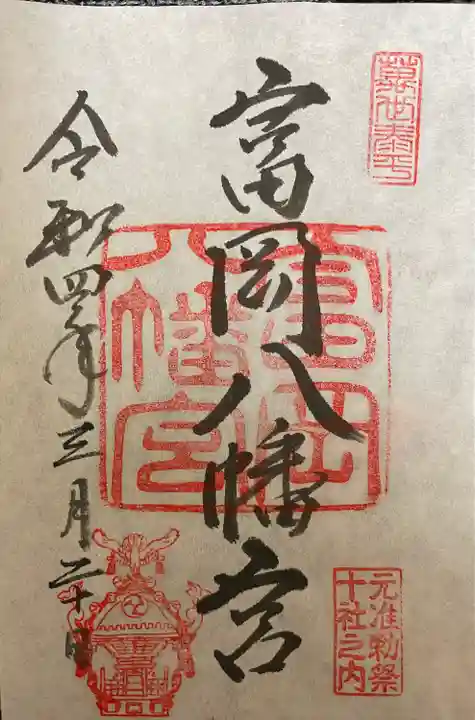 萬世泰平
富岡八幡宮
富岡
八幡宮
元准勅祭
十社之内
令和四年三月二十日